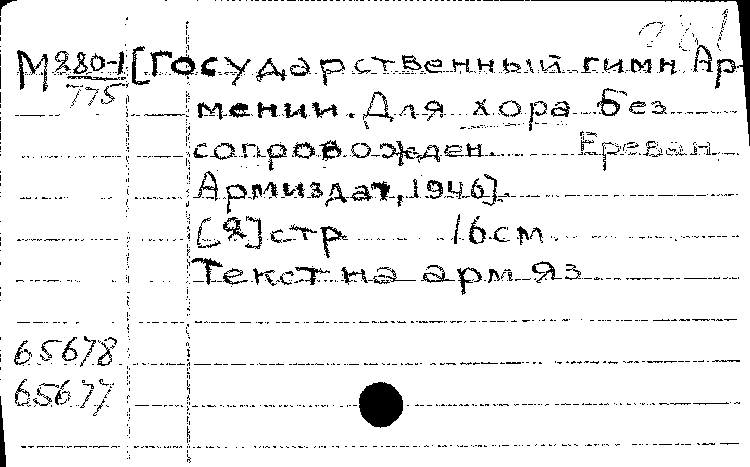 М280-1 [Государственный гимн Ар-
775
мении. Для хора без
сопровожден. Ереван
Армиздат, 1946].
[2] стр 16 см
Текст на арм яз
65678
65677